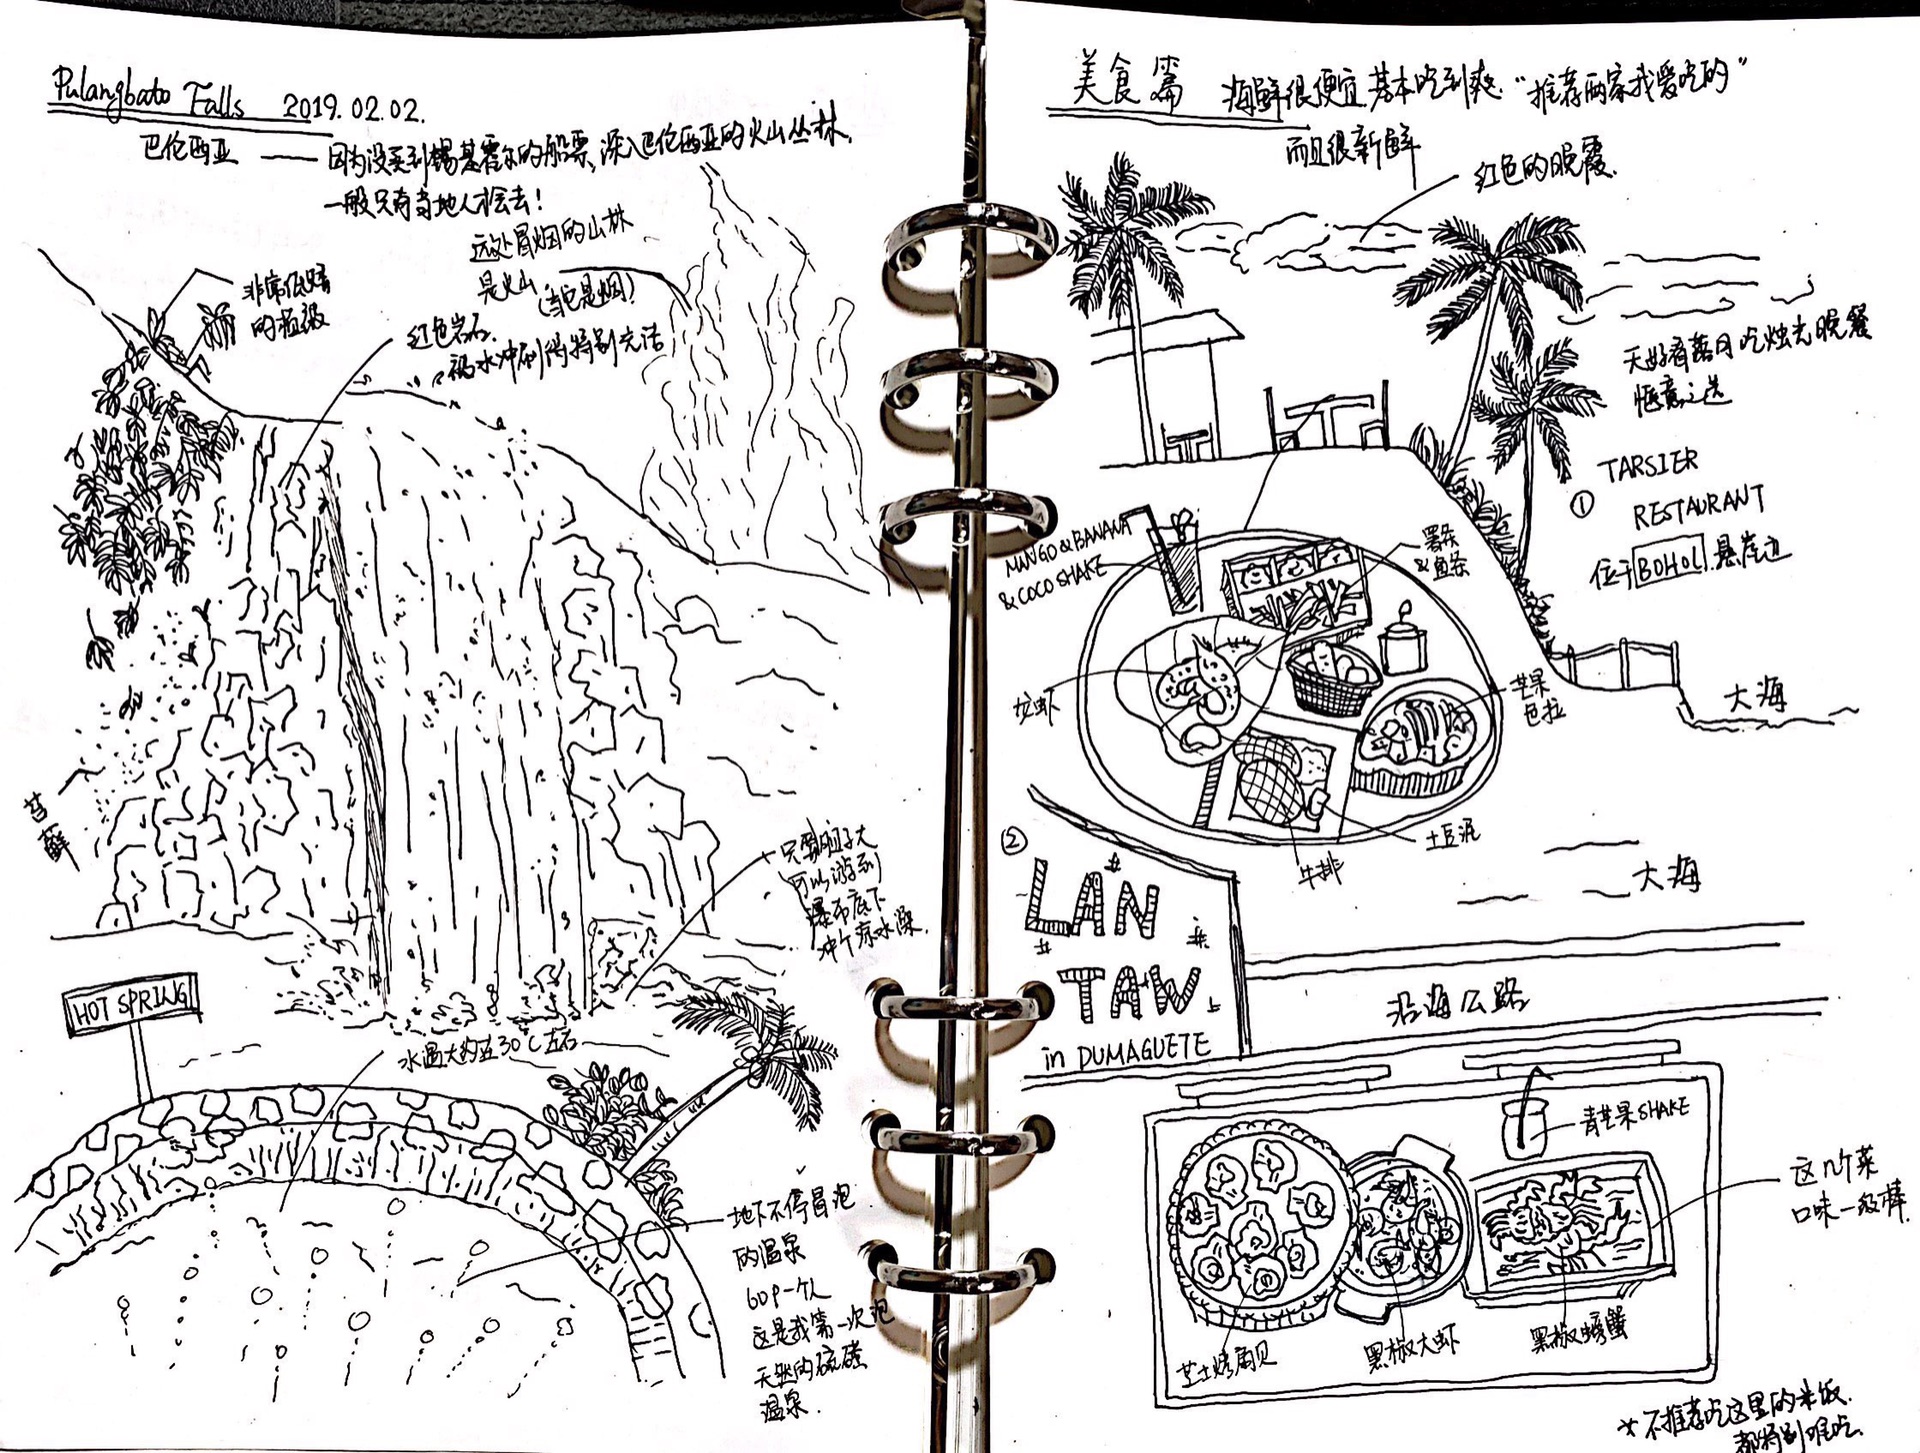 Pulangbato Falls 2019.02.02.
巴伦西亚 —— 因为没买到锡基霍尔的船票,深入巴伦西亚的火山丛林,
一般只有当地人才会去!
远处冒烟的山林
是火山(当它是烟)
非常低矮
的植被
红色岩石,
被水冲刷得特别光洁
苔藓
只要胆子大
可以游到
瀑布底下
冲个凉水澡.
HOT SPRING
水温大约在30℃左右
地下不停冒泡
的温泉
60P一个人
这是我第一次泡
天然的硫磺
温泉.
美食篇 海鲜很便宜 基本吃到爽."推荐两家我爱吃的"
而且很新鲜
红色的晚霞.
天好看落日吃烛光晚餐
惬意之选
① TARSIER
RESTAURANT
位于BOHOL.悬崖边
MANGO & BANANA
& COCO SHAKE
薯条
& 鱼条
芒果
色拉
大海
土豆泥
牛排
大海
②
LAN
TAW
in DUMAGUETE
沿海公路
青芒果SHAKE
这几个菜
口味一级棒.
芝士烤扇贝
黑椒大虾
黑椒螃蟹
*不推荐吃这里的米饭.
都特别难吃.